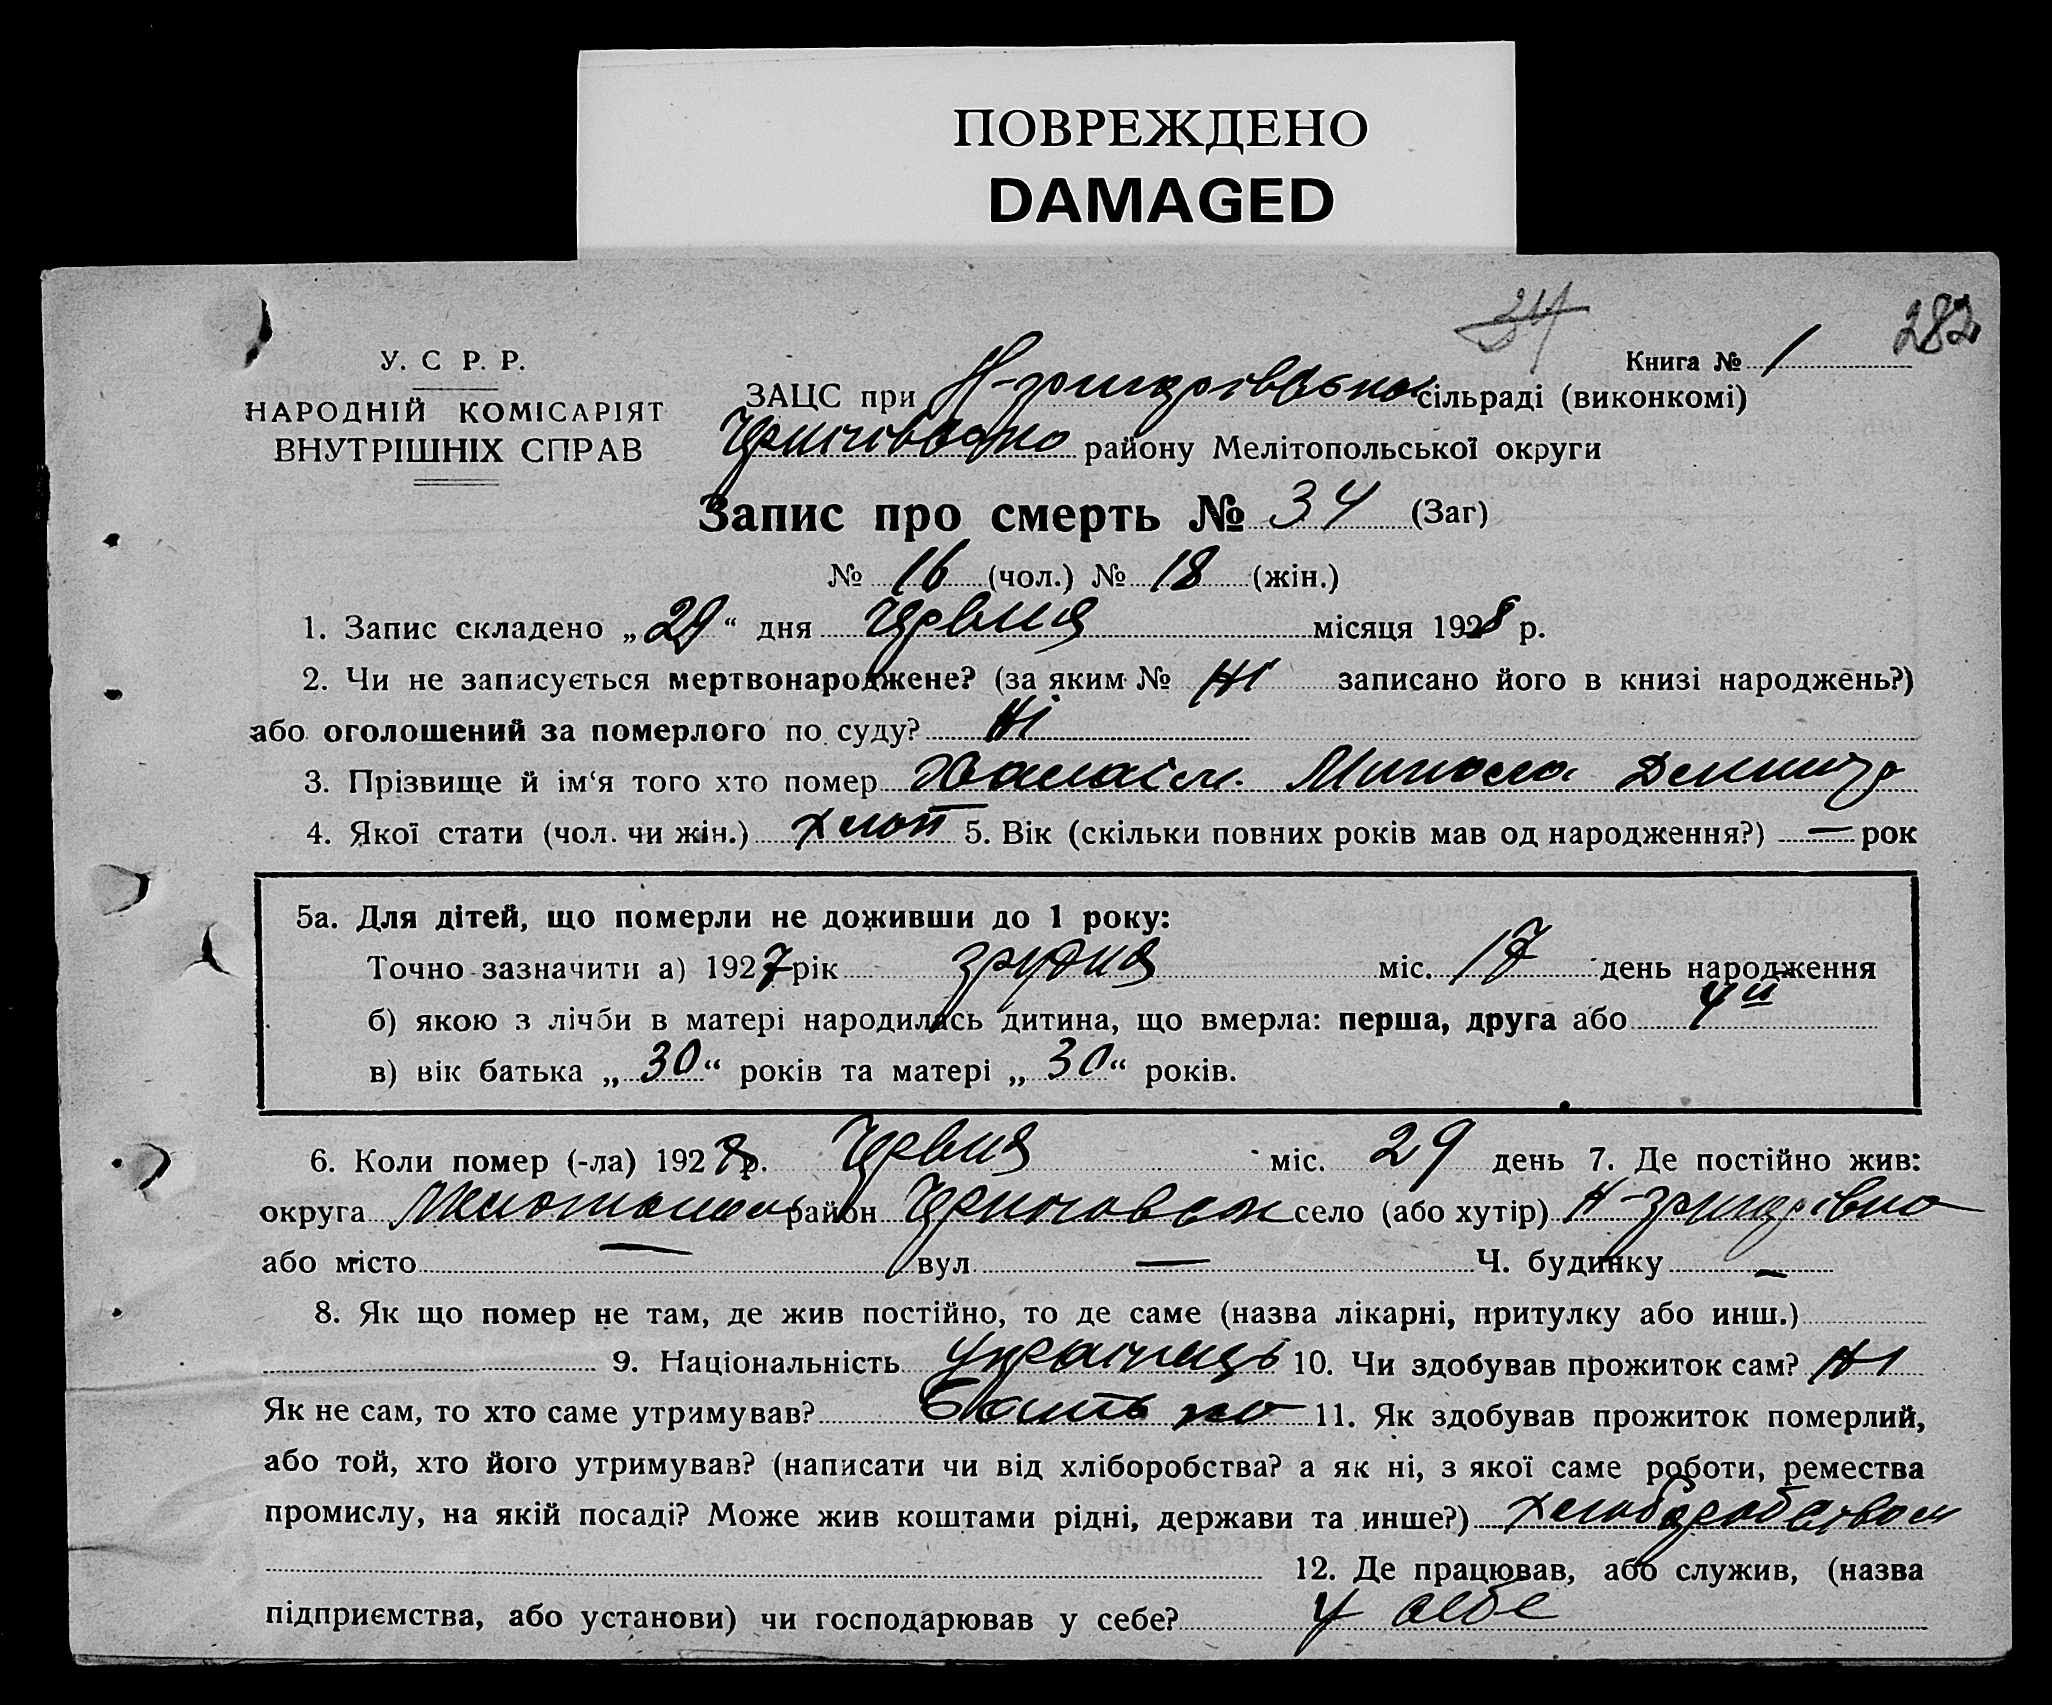 ПОВРЕЖДЕНО
DAMAGED
34
282
Книга № 1
У. С Р. Р.
НАРОДНІЙ КОМІСАРІЯТ
ВНУТРІШНІХ СПРАВ
ЗАЦС при сільраді (виконкомі)
району Мелітопольської округи
Запис про смерть № 34 (Заг)
№ 16 (чол.) № 18 (жін.)
1. Запис складено „29“ дня Червня місяця 1928 р.
2. Чи не записується мертвонароджене? (за яким № Ні записано його в книзі народжень?)
або оголошений за померлого по суду? Ні
3. Прізвище й ім‘я того хто помер Микола
4. Якої стати (чол. чи жін.) хлоп 5. Вік (скільки повних років мав од народження?) — рок
5а. Для дітей, що померли не доживши до 1 року:
Точно зазначити а) 1927 рік грудня міс. 17 день народження
б) якою з лічби в матері народилась дитина, що вмерла: перша, друга або 4й
в) вік батька „30“ років та матері „30“ років.
6. Коли помер (-ла) 1928 р. Червня міс. 29 день 7. Де постійно жив:
округа район село (або хутір)
або місто — вул. — Ч. будинку —
8. Як що помер не там, де жив постійно, то де саме (назва лікарні, притулку або инш.)
9. Національність Українець 10. Чи здобував прожиток сам? Ні
Як не сам, то хто саме утримував? Батько 11. Як здобував прожиток померлий,
або той, хто його утримував? (написати чи від хліборобства? а як ні, з якої саме роботи, ремества
промислу, на якій посаді? Може жив коштами рідні, держави та инше?) хліборобством
12. Де працював, або служив, (назва
підприємства, або установи) чи господарював у себе? у себе